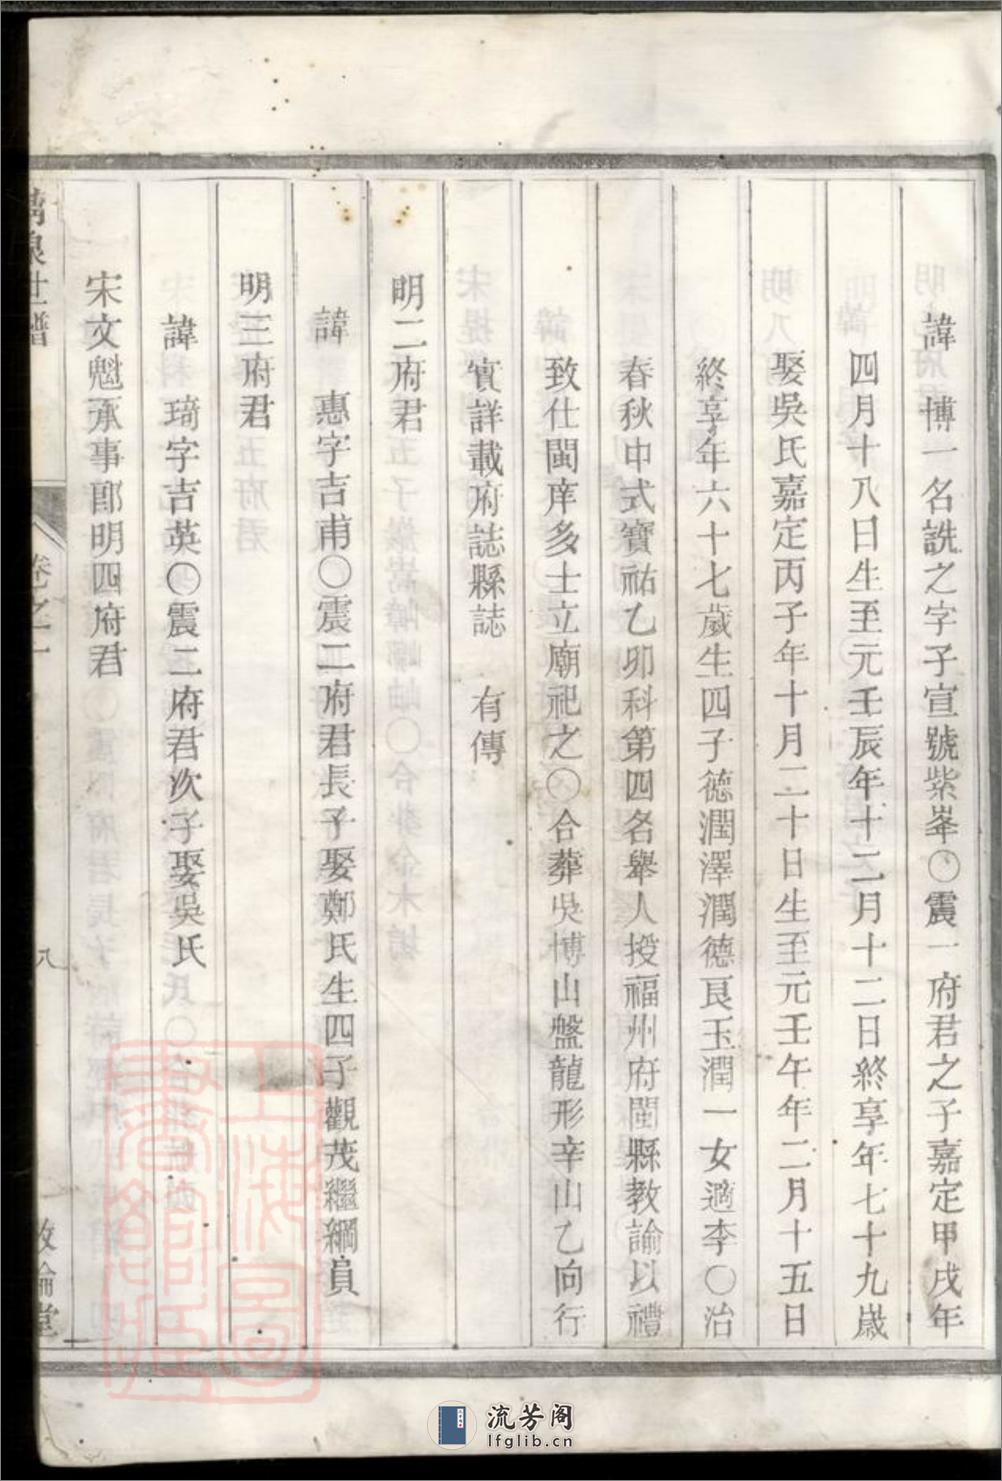 諱博一名詵之字子宣號紫峯〇震一府君之子嘉定甲戌年
四月十八日生至元壬辰年十二月十二日終享年七十九歲
娶吳氏嘉定丙子年十月二十日生至元壬午年二月十五日
終享年六十七歲生四子德潤澤潤德艮玉潤一女適李〇治
春秋中式寶祐乙卯科第四名舉人授福州府閩縣教諭以禮
致仕閩庠多士立廟祀之〇合葬吳博山盤龍形辛山乙向行
實詳載府誌縣誌 有傳
明二府君
諱 惠字吉甫〇震二府君長子娶鄭氏生四子觀茂繼綱員
明三府君
諱 琦字吉英〇震二府君次子娶吳氏
宋文魁承事郎明四府君
世譜
卷之一
八
敦倫堂
上海圖書館藏
流芳阁
lfglib.cn